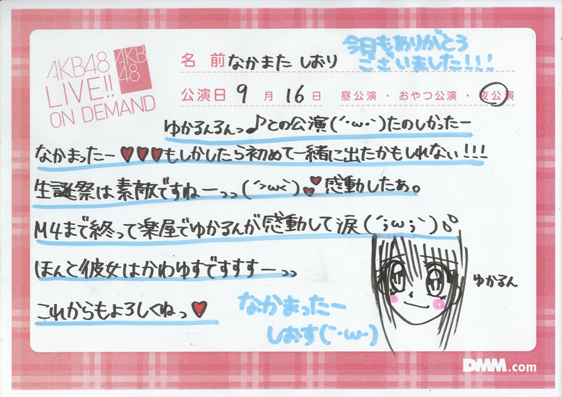 AKB48
LIVE!!
ON DEMAND
AKB
48
名前 なかまた しおり
今日もありがとう
ございました!!!
公演日 9月16日 昼公演・おやつ公演・夜公演
ゆかるんるんっ♪との公演(´･ω･`)たのしかったー
なかまったー♥♥♥もしかしたら初めて一緒に出たかもしれない!!!
生誕祭は素敵ですねーっっ(´>ω<`)♥感動したぁ。
M4まで終って楽屋でゆかるんが感動して涙(´;ω;`)
ほんと彼女はかわゆすですすすーっっ
これからもよろしくねっ♥
ゆかるん
なかまったー
しおす(´･ω･`)
DMM.com